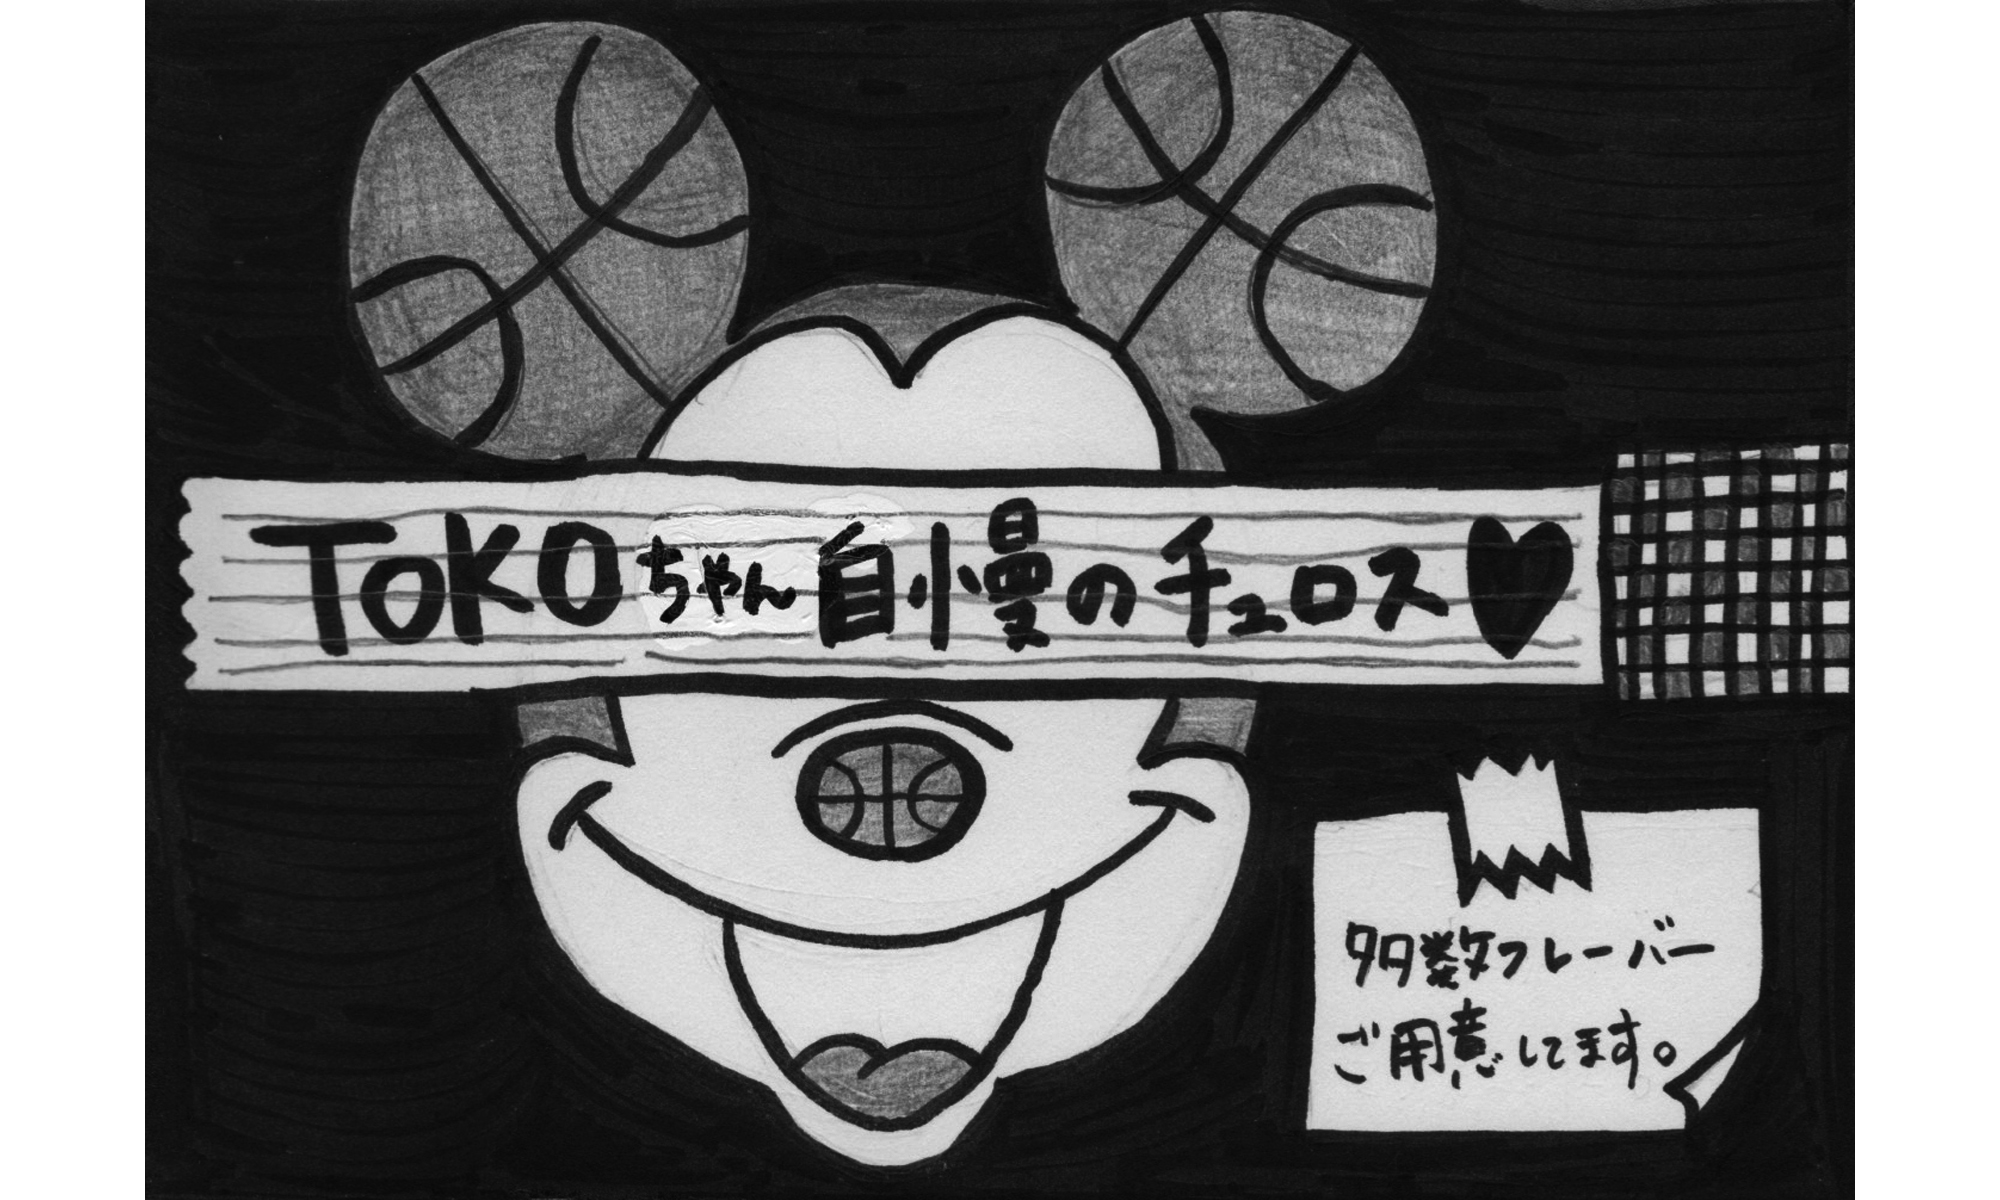 TOKOちゃん自慢のチュロス♥
多数フレーバー
ご用意してます。